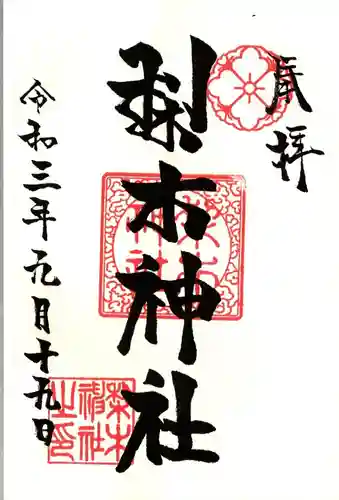 奉拝
梨木神社
令和三年九月十九日
梨木
神社
梨木
神社
之印